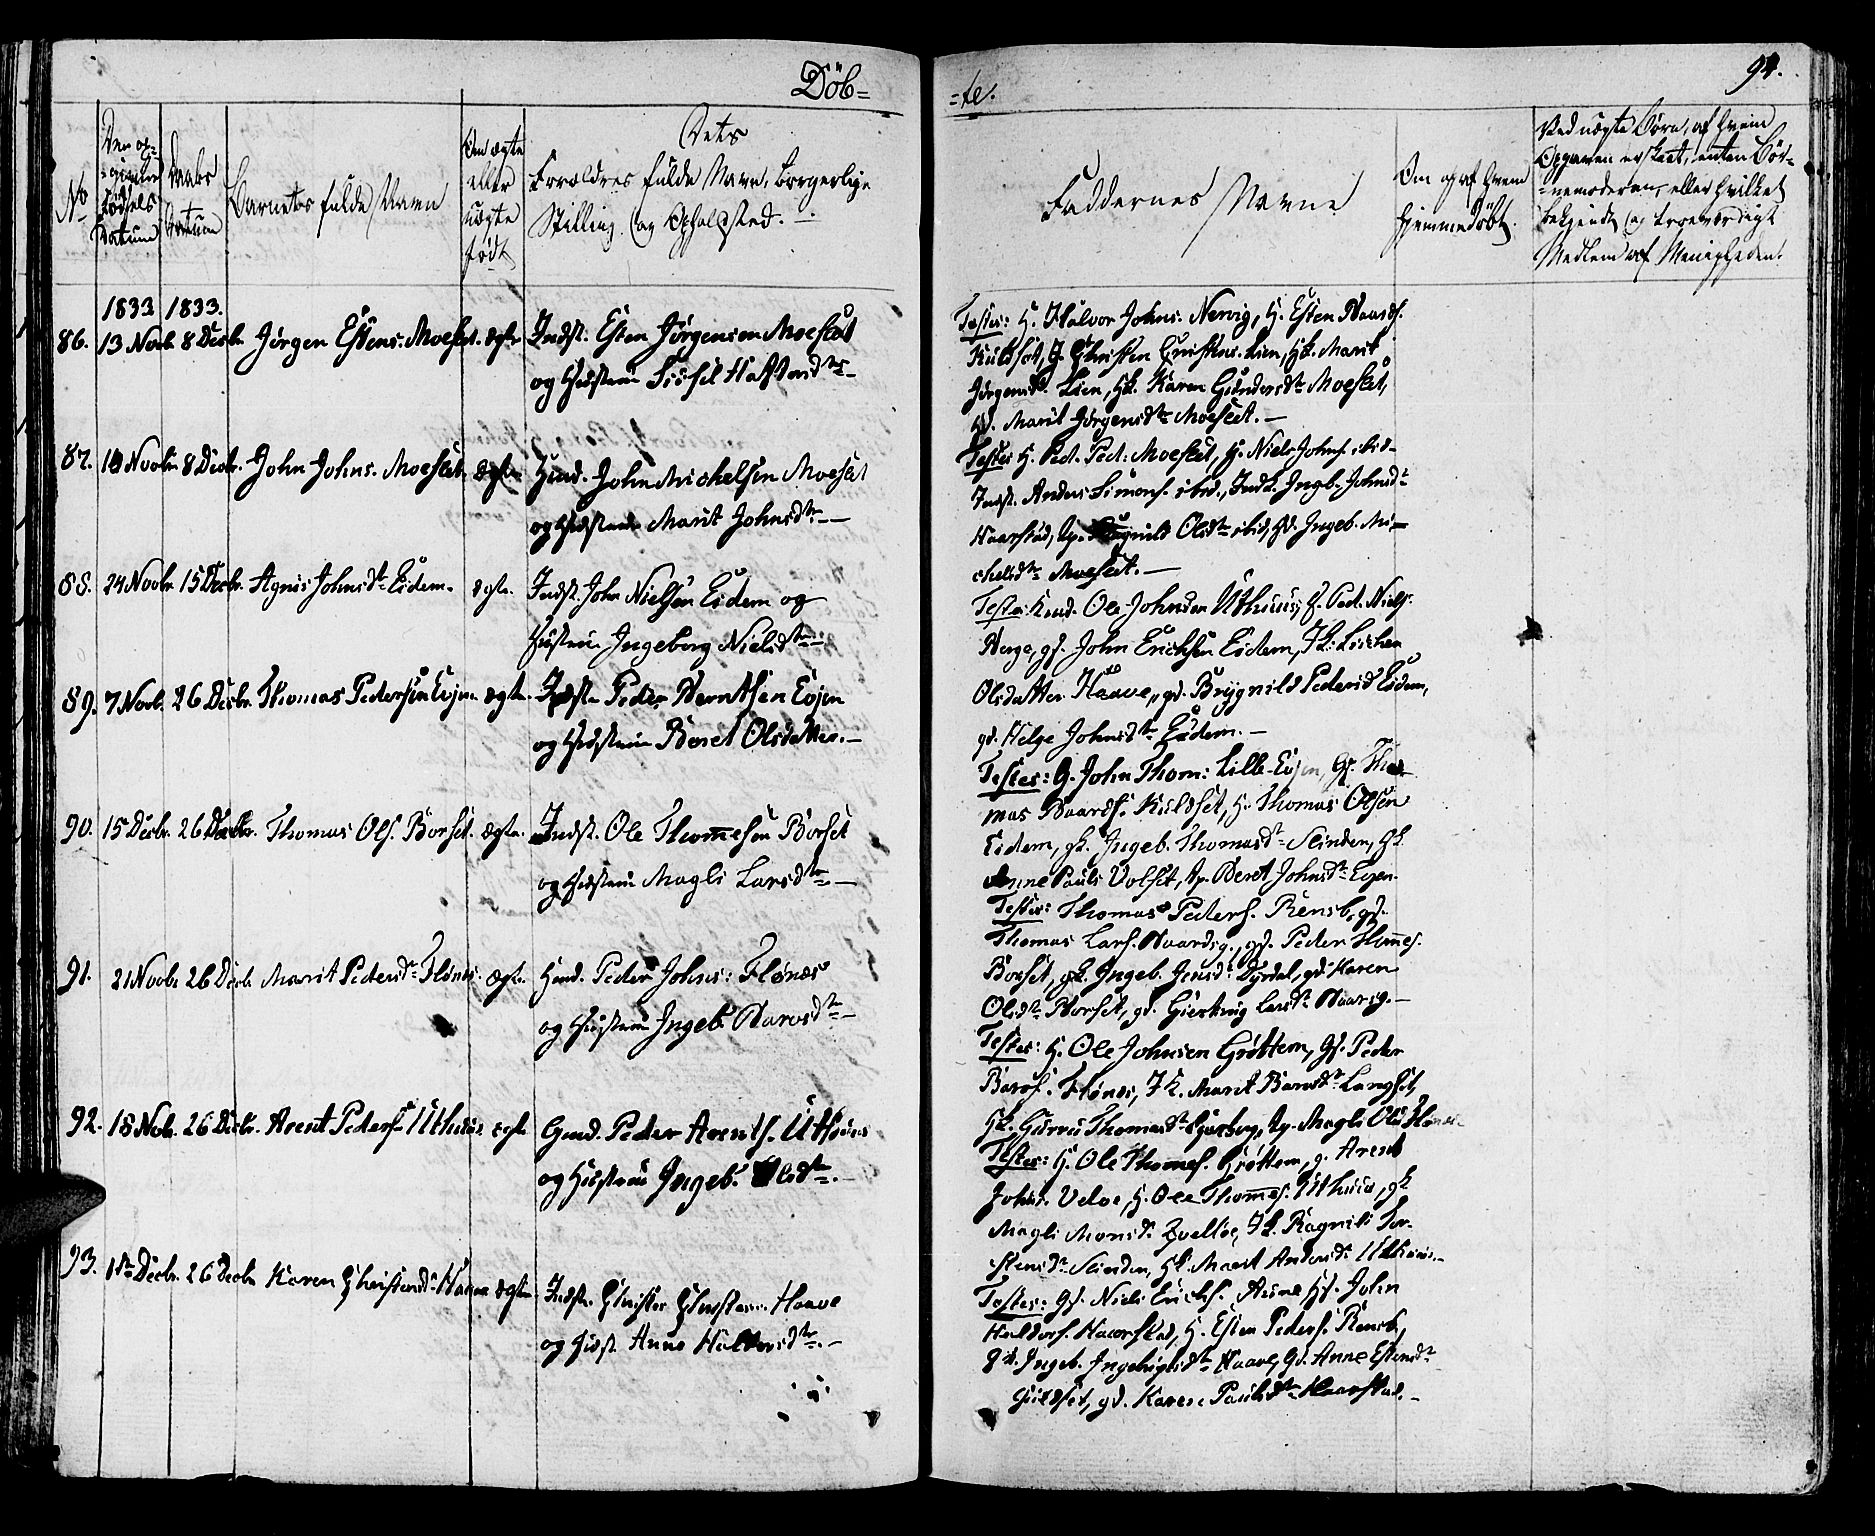 Döb=
=te.
94.
No
Den op-
-givne
Fødsels
Datum
Daabs
Datum
Barnets fulde Navn
Om ægte
eller
uægte
født
Dets
Foreldres fulde Navn, Borgerlige
Stilling og Opholdsted.
Faddernes Navne
Om og af hvem
hjemmedøbt.
Ved uægte Børn, af hvem
Opgaven er skeet, enten Bør-
-nemoderen, eller hvilket
bekjendt og troeværdigt
Medlem af Menigheden.
1833 1833.
86. 13 Novb. 8 Decbr. Jörgen Estens. Moeslet. ægte Indst. Esten Jörgensen Moeslet
og Hustrue Sissel Haftorsdtr
Testes: H. Halvor Johns. Nervig, H. Esten Baards.
Kulset, G. Christen Christens. Lien, Hk. Marit
Jörgensd. Lien, Hk. Karen Gundersdtr Moeslet,
Gd. Marit Jörgensdtr Moeslet.
87. 14 Novbr. 8 Decbr. John Johns. Moeslet. ægte Huusd. John Michelsen Moeslet
og Hustrue Marit Johnsdtr.
Testes H. Ped. Ped. Moeslet, H. Niels Johns. ibid
Indst. Anders Simons. ibid., Indk. Ingb. Johnsdtr
Haarstad, Olsdtr ibid, Gd. Ingeb. Mi-
chelsdtr Moeslet.
88. 24 Novbr. 15 Decbr. Agnis Johnsdtr Eidem. ægte. Indst. John Nielsen Eidem og
Hustrue Ingeborg Nielsdtr
Testes: Ole Johnsen Uthuus, Ped. Niels.
Berge, gs. John Erichsen Eidem, Ik. Lisebeu
Olsdatter Haave, gd. Brÿgnild Pedersd Eidem,
gd. Helge Johnsdtr Eidem.
89. 7 Novb. 26 Decbr. Thomas Pedersen Evjen ægte. Indst. Peder Berntsen Evjen
og Hustrue Beret Olsdatter.
Testes: G. John Thom: Lille-Evjen, Gs. Tho-
mas Baards. Kuldset, H. Thomas Olsen
Eidem, gk. Ingeb. Thomasdtr Selinden, gk.
Anne Pauls Volset, tp. Beret Johnsdtr Evjen.
90. 15 Decbr. 26 Decbr. Thomas Ols. Borset. ægte. Indst. Ole Thomesen Borset
og Hustrue Magli Larsdtr
Testes: Thomas Peders. Rensb, gs.
Thomas Lars. Baardsg., gs. Peder Thomes.
Borset, gk. Ingeb. Jensdtr Dyrdal, gd. Karen
Olsdtr Borset, gd. Giertrug Larsdtr Baarsg.
91. 21 Novbr. 26 Decb. Marit Pedersdtr Flönes. ægte. Huusd. Peder Johns: Flönes
og Hustrue Ingeb. Baarsdtr
Testes: H. Ole Johnsen Gröttem, Gs. Peder
Baars. Flönes, Ik. Marit Baarsdtr Langset,
Gk. Guruu Thomasdtr tp. Magli Ols Flönes
92. 18 Nob. 26 Decbr. Arent Peders. Uthuus. ægte Gmd. Peder Arents. Uthuus
og Hustrue Ingeb. Olsdtr.
Testes: H. Ole Thomes. Gröttem, g. Arent
Johns. Veloe, H. Ole Thomes. Uthuus, gk
Magli Monsd. Ik. Ragnild Tor-
stensdtr Selinden, Hk. Marit Andersd. Uthuus.
93. 1ste Decbr. 26 Decbr Karen Christensd. Haave ægte Indst. Christen Christens. Haave
og Hust. Anne Haldorsdtr.
Testes: Gs. Niels Erichs. Aune, Gs. John
Haldors. Haarstad, H. Esten Peders. Rensb,
Gk. Ingeb. Ingebrigtsdtr Haave, Gd. Anne Estensdtr
Guldset, gd. Karen Paulsdtr Haarstad.